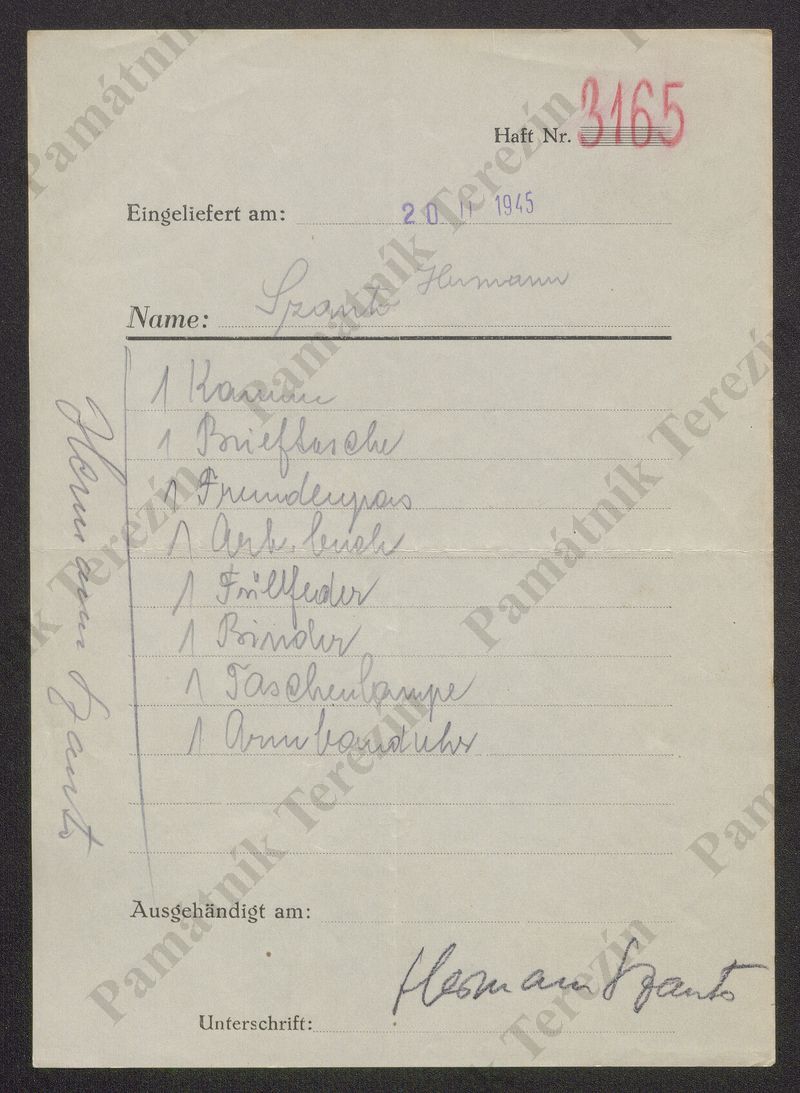 Haft Nr. 3165
Eingeliefert am: 20 II 1945
Name: Szanto Hermann
1 Kamm
1 Brieftasche
1 Fremdenpas
1 Arb. buch
1 Füllfeder
1 Binder
1 Taschenlampe
1 Armbanduhr
Hermann Szanto
Ausgehändigt am:
Hermann Szanto
Unterschrift:
Památník Terezín
Památník Terezín
Památník Terezín
Památník Terezín